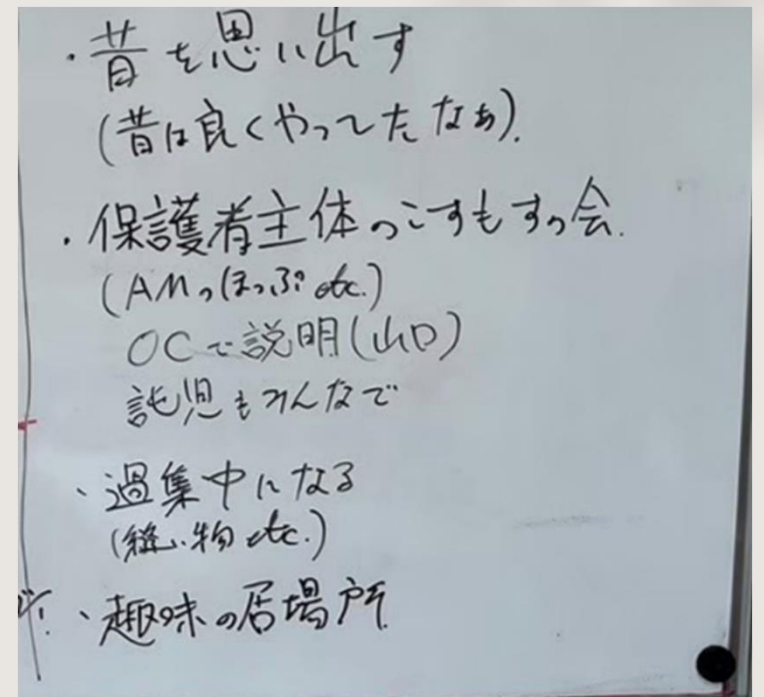 ・昔を思い出す
(昔は良くやってたなぁ).
・保護者主体のこすもすの会.
(AMのほっぷ etc.)
OCで説明(山口)
託児もみんなで
・過集中になる
(縫い物 etc.)
・趣味の居場所